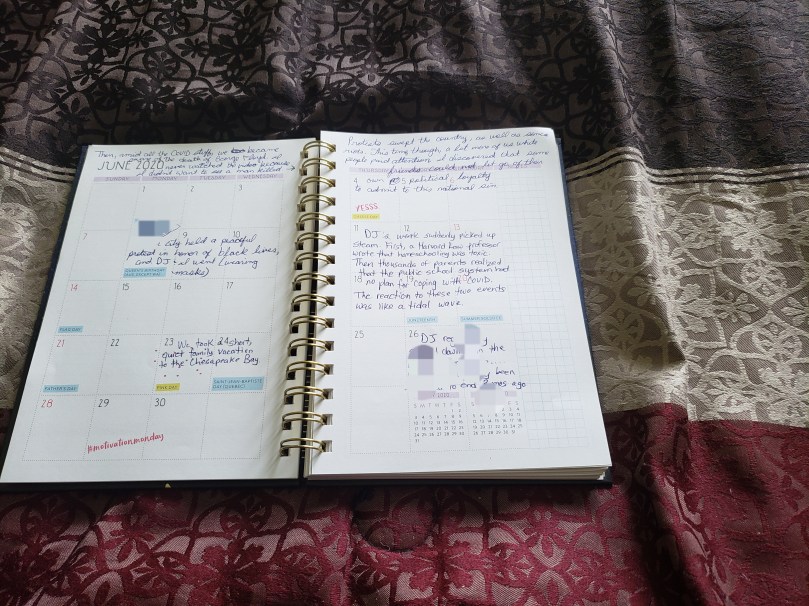 Then, amid all the COVID stuff, we became
aware of the death of George Floyd. I
JUNE 2020 never watched the video because
I didn't want to see a man killed
TUESDAY WEDNESDAY
1 2 3
7 9 10
city held a peaceful
protest in honor of black lives,
and DJ + I went (wearing
masks)
14 15 16 17
FLAG DAY
21 22 23 We took a short,
quiet family vacation
to the Chesapeake Bay.
FATHER'S DAY
SAINT-JEAN-BAPTISTE
DAY (QUEBEC)
28 29 30
#motivationmonday
Protests swept the country, as well as some
riots. This time though, a lot more of us white
people paid attention. I discovered that some
friends could not let go of their
4 own political loyalty
to admit to this national sin
11 12 13
DJ's work suddenly picked up
steam. First, a Harvard law professor
wrote that homeschooling was toxic.
Then thousands of parents realized
that the public school system had
18 no plan for coping with COVID.
The reaction to these two events
was like a tidal wave.
25 26 DJ
down the
been
ago
2020
S M T W T F S